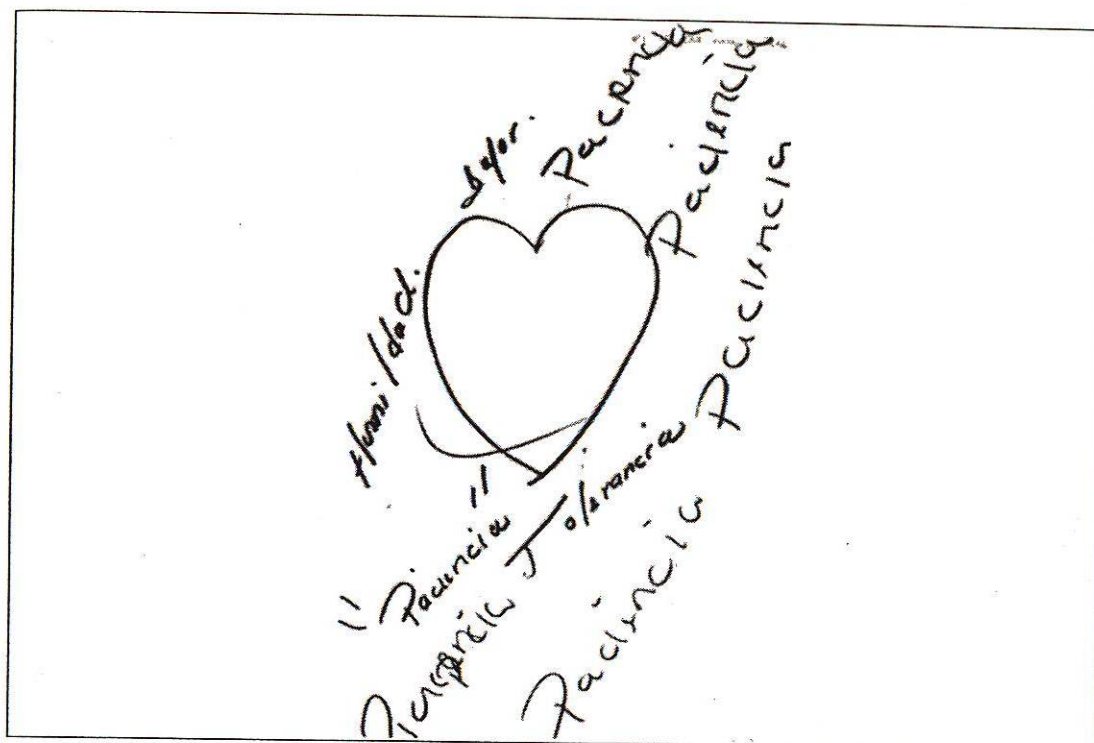 Pacencia
Paciencia
Paciencia
Humildad.
"Paciencia"
Tolerancia
Paciencia
Paciencia